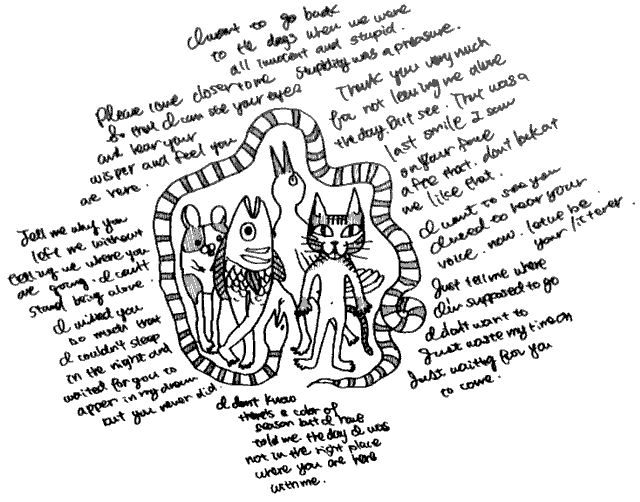 I want to go back
to the days when we were
all innocent and stupid.
Stupidity was a preasure.
Please come closer to me
So that I can see your eyes
and hear your
wisper and feel you
are here.
Thank you very much
for not leaving me alone
the day. But see. That was a
last smile I saw
on your face
after that. don't look at
me like that.
I want to see you
I need to hear your
voice. now. Let us be.
your listener.
Just tell me where
I'm supposed to go
I don't want to
Just waste my time on
Just waiting for you
to come.
Tell me why you
left me without
telling me where you
are going. I can't
stand being alone.
I missed you
so much that
I couldn't sleep
in the night and
waited for you to
apper in my dream
but you never did.
I don't know
there's a color of
season but I have
told me. the day I was
not in the right place
where you are here
with me.